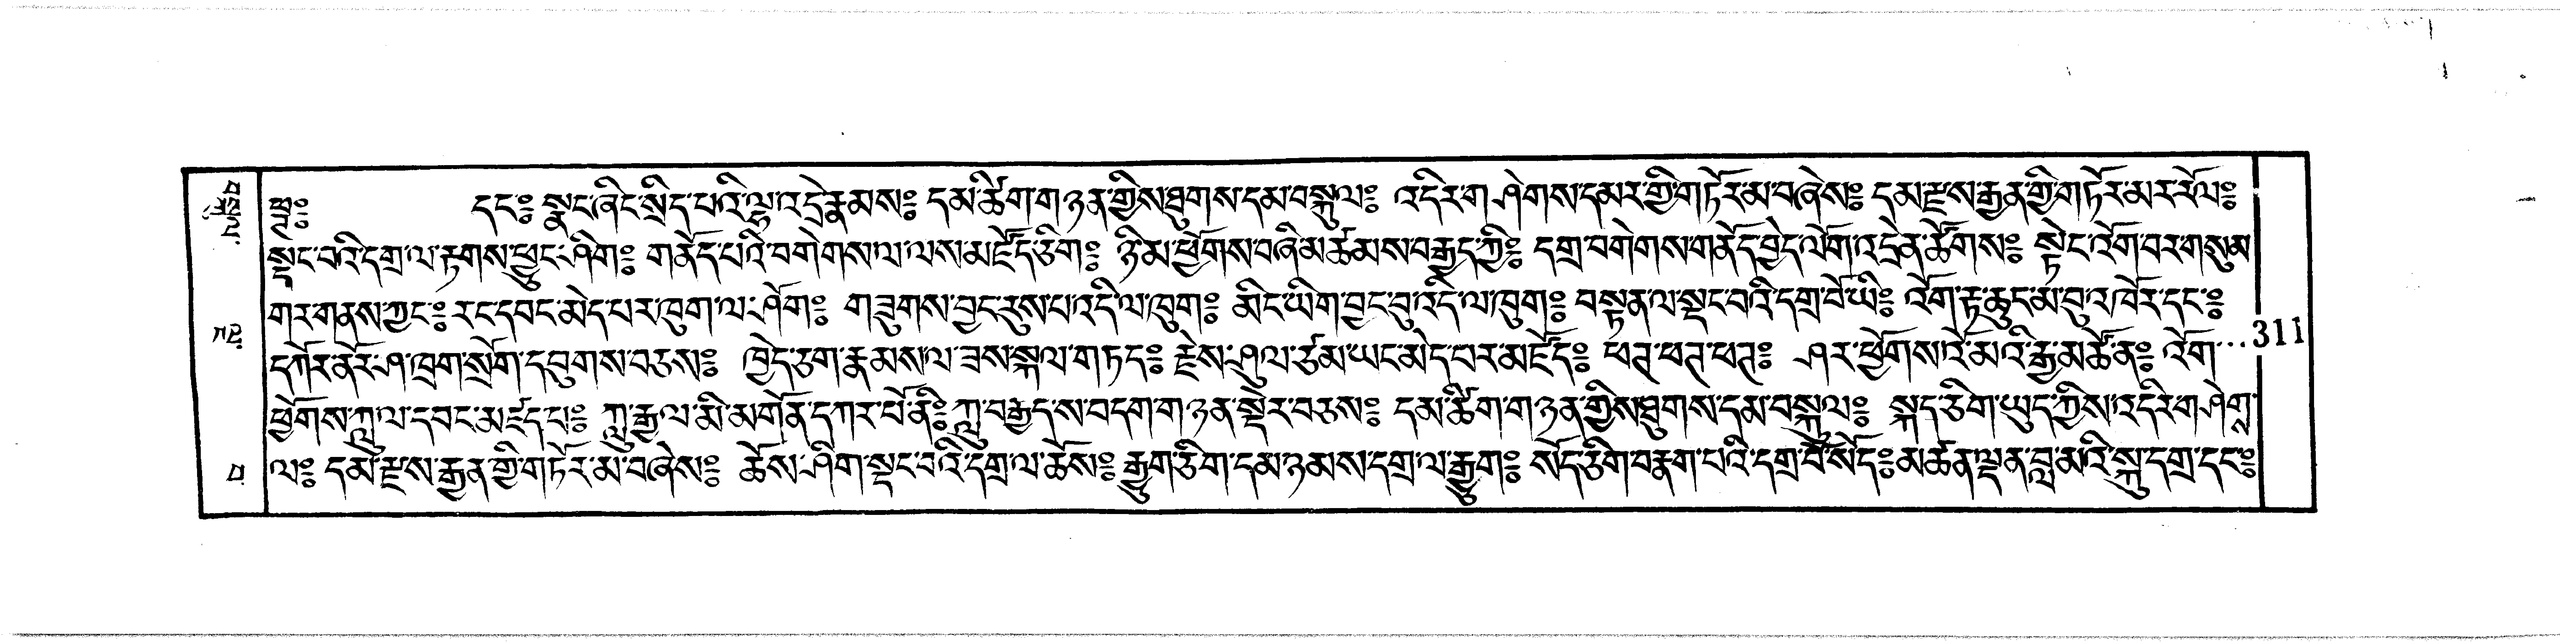 ༄༅༔ དང༔ སྣང་ཞིང་སྲིད་པའི་ལྷ་འདྲེ་རྣམས༔ དམ་ཚིག་གཉན་གྱིས་ཐུགས་དམ་བསྐུལ༔ འདིར་གཤེགས་དམར་གྱི་གཏོར་མ་བཞེས༔ དམ་རྫས་རྒྱན་གྱི་གཏོར་མར་རོལ༔
སྡང་བའི་དགྲ་ལ་རྟགས་ཕྱུང་ཤིག༔ གནོད་པའི་བགེགས་ལ་ལས་མཛོད་ཅིག༔ ཉི་མ་ཕྱོགས་བཞི་མཚམས་བརྒྱད་ཀྱི༔ དགྲ་བགེགས་གནོད་བྱེད་ལོག་འདྲེན་ཚོགས༔ སྟེང་འོག་བར་གསུམ
གར་གནས་ཀྱང༔ རང་དབང་མེད་པར་ཁུག་ལ་ཤོག༔ གཟུགས་བྱང་རུས་པ་འདི་ལ་ཁུག༔ མིང་ཡིག་བྱང་བུ་འདི་ལ་ཁུག༔ བསྟན་ལ་སྡང་བའི་དགྲ་བོ་ཡི༔ འོག་རྟ་ཆུང་མ་བུ་འཁོར་དང༔
དཀོར་ནོར་ཤ་ཁྲག་སྲོག་དབུགས་བཅས༔ ཁྱེད་ཅག་རྣམས་ལ་ཟས་སྐལ་གཏད༔ རྗེས་ཤུལ་ཙམ་ཡང་མེད་པར་མཛོད༔ ཕཊ་ཕཊ་ཕཊ༔ ཤར་ཕྱོགས་འོ་མའི་རྒྱ་མཚོ་ན༔ འོག་··· 311
ཕྱོགས་ཀླུ་ལ་དབང་མཛད་པ༔ ཀླུ་རྒྱལ་མི་མགོན་དཀར་པོ་ནི༔ ཀླུ་བརྒྱད་ས་བདག་གཉན་སྡེར་བཅས༔ དམ་ཚིག་གཉན་གྱིས་ཐུགས་དམ་བསྐུལ༔ སྐད་ཅིག་ཡུད་ཀྱིས་འདིར་གཤེགས
ལ༔ དམ་རྫས་རྒྱན་གྱི་གཏོར་མ་བཞེས༔ ཆོས་ཤིག་སྡང་བའི་དགྲ་ལ་ཆོས༔ རྒྱུག་ཅིག་དམ་ཉམས་དགྲ་ལ་རྒྱུག༔ སོད་ཅིག་བརྣག་པའི་དགྲ་བོ་སོད༔ མཚན་ལྡན་བླ་མའི་སྐུ་དགྲ་དང༔